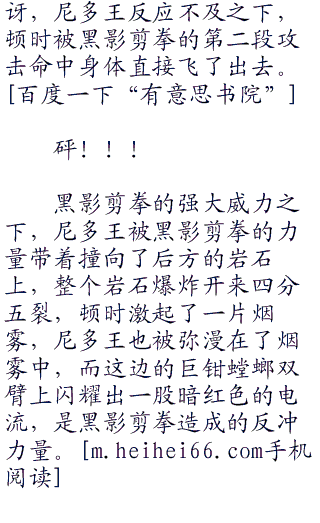 讶，尼多王反应不及之下，
顿时被黑影剪拳的第二段攻
击命中身体直接飞了出去。
[百度一下“有意思书院”]
砰！！！
黑影剪拳的强大威力之
下，尼多王被黑影剪拳的力
量带着撞向了后方的岩石
上，整个岩石爆炸开来四分
五裂，顿时激起了一片烟
雾，尼多王也被弥漫在了烟
雾中，而这边的巨钳螳螂双
臂上闪耀出一股暗红色的电
流，是黑影剪拳造成的反冲
力量。[m.heihei66.com手机
阅读]